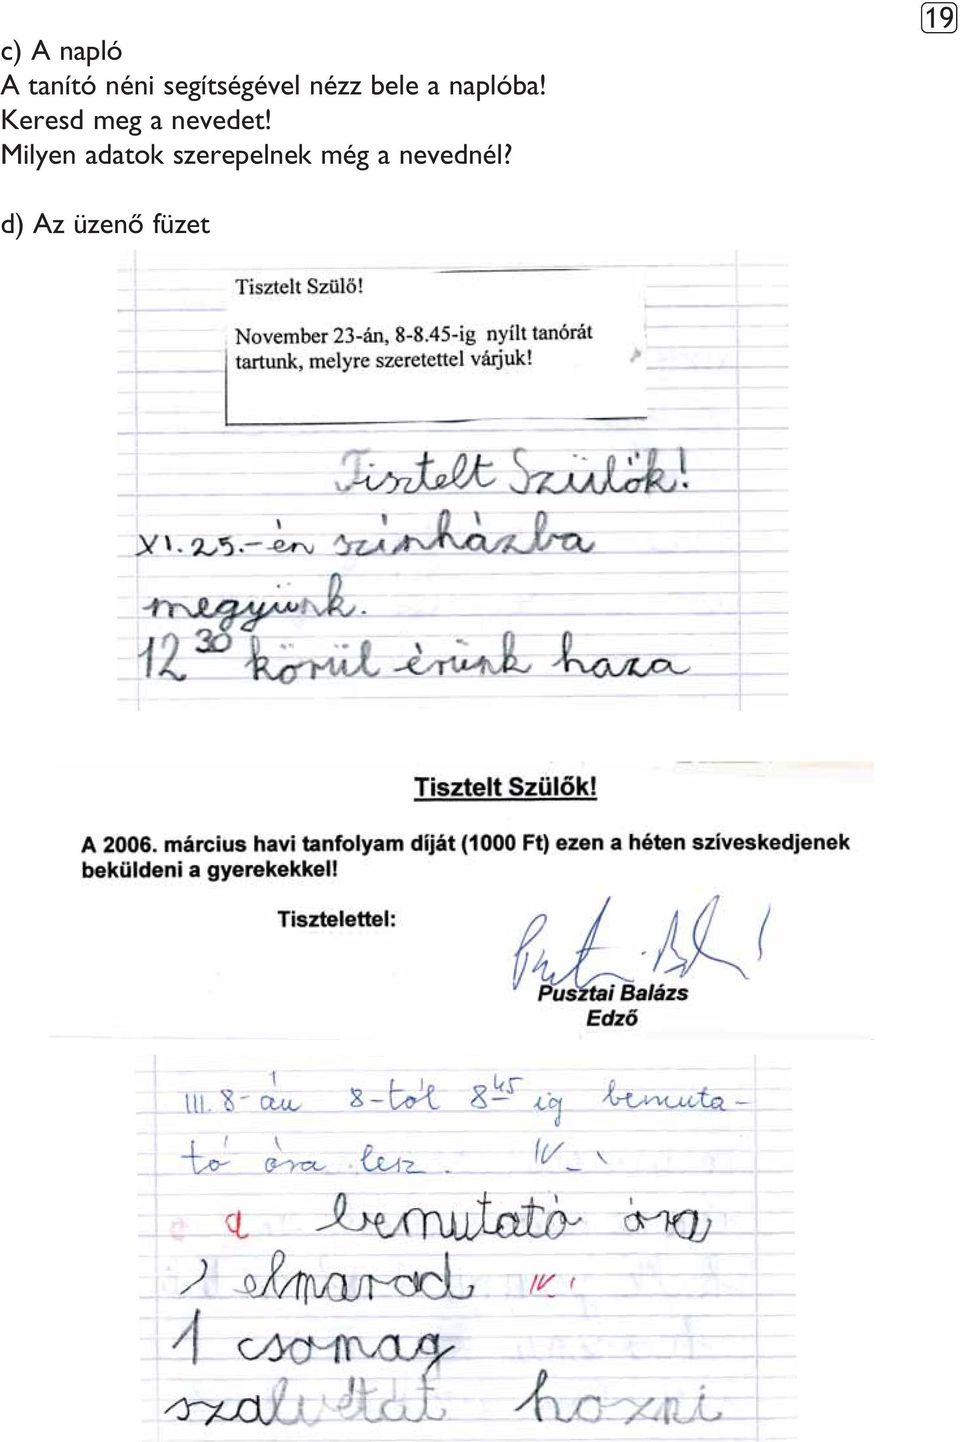 19
c) A napló
A tanító néni segítségével nézz bele a naplóba!
Keresd meg a nevedet!
Milyen adatok szerepelnek még a nevednél?
d) Az üzenő füzet
Tisztelt Szülő!
November 23-án, 8-8.45-ig nyílt tanórát
tartunk, melyre szeretettel várjuk!
Tisztelt Szülők!
XI. 25.-én színházba
megyünk.
12 30 körül érünk haza
Tisztelt Szülők!
A 2006. március havi tanfolyam díját (1000 Ft) ezen a héten szíveskedjenek
beküldeni a gyerekekkel!
Tisztelettel:
Pusztai Balázs
Edző
III. 8-án 8-tól 8 45 ig bemuta-
tó óra lesz.
a bemutató óra
elmarad
1 csomag
szalvétát hozni